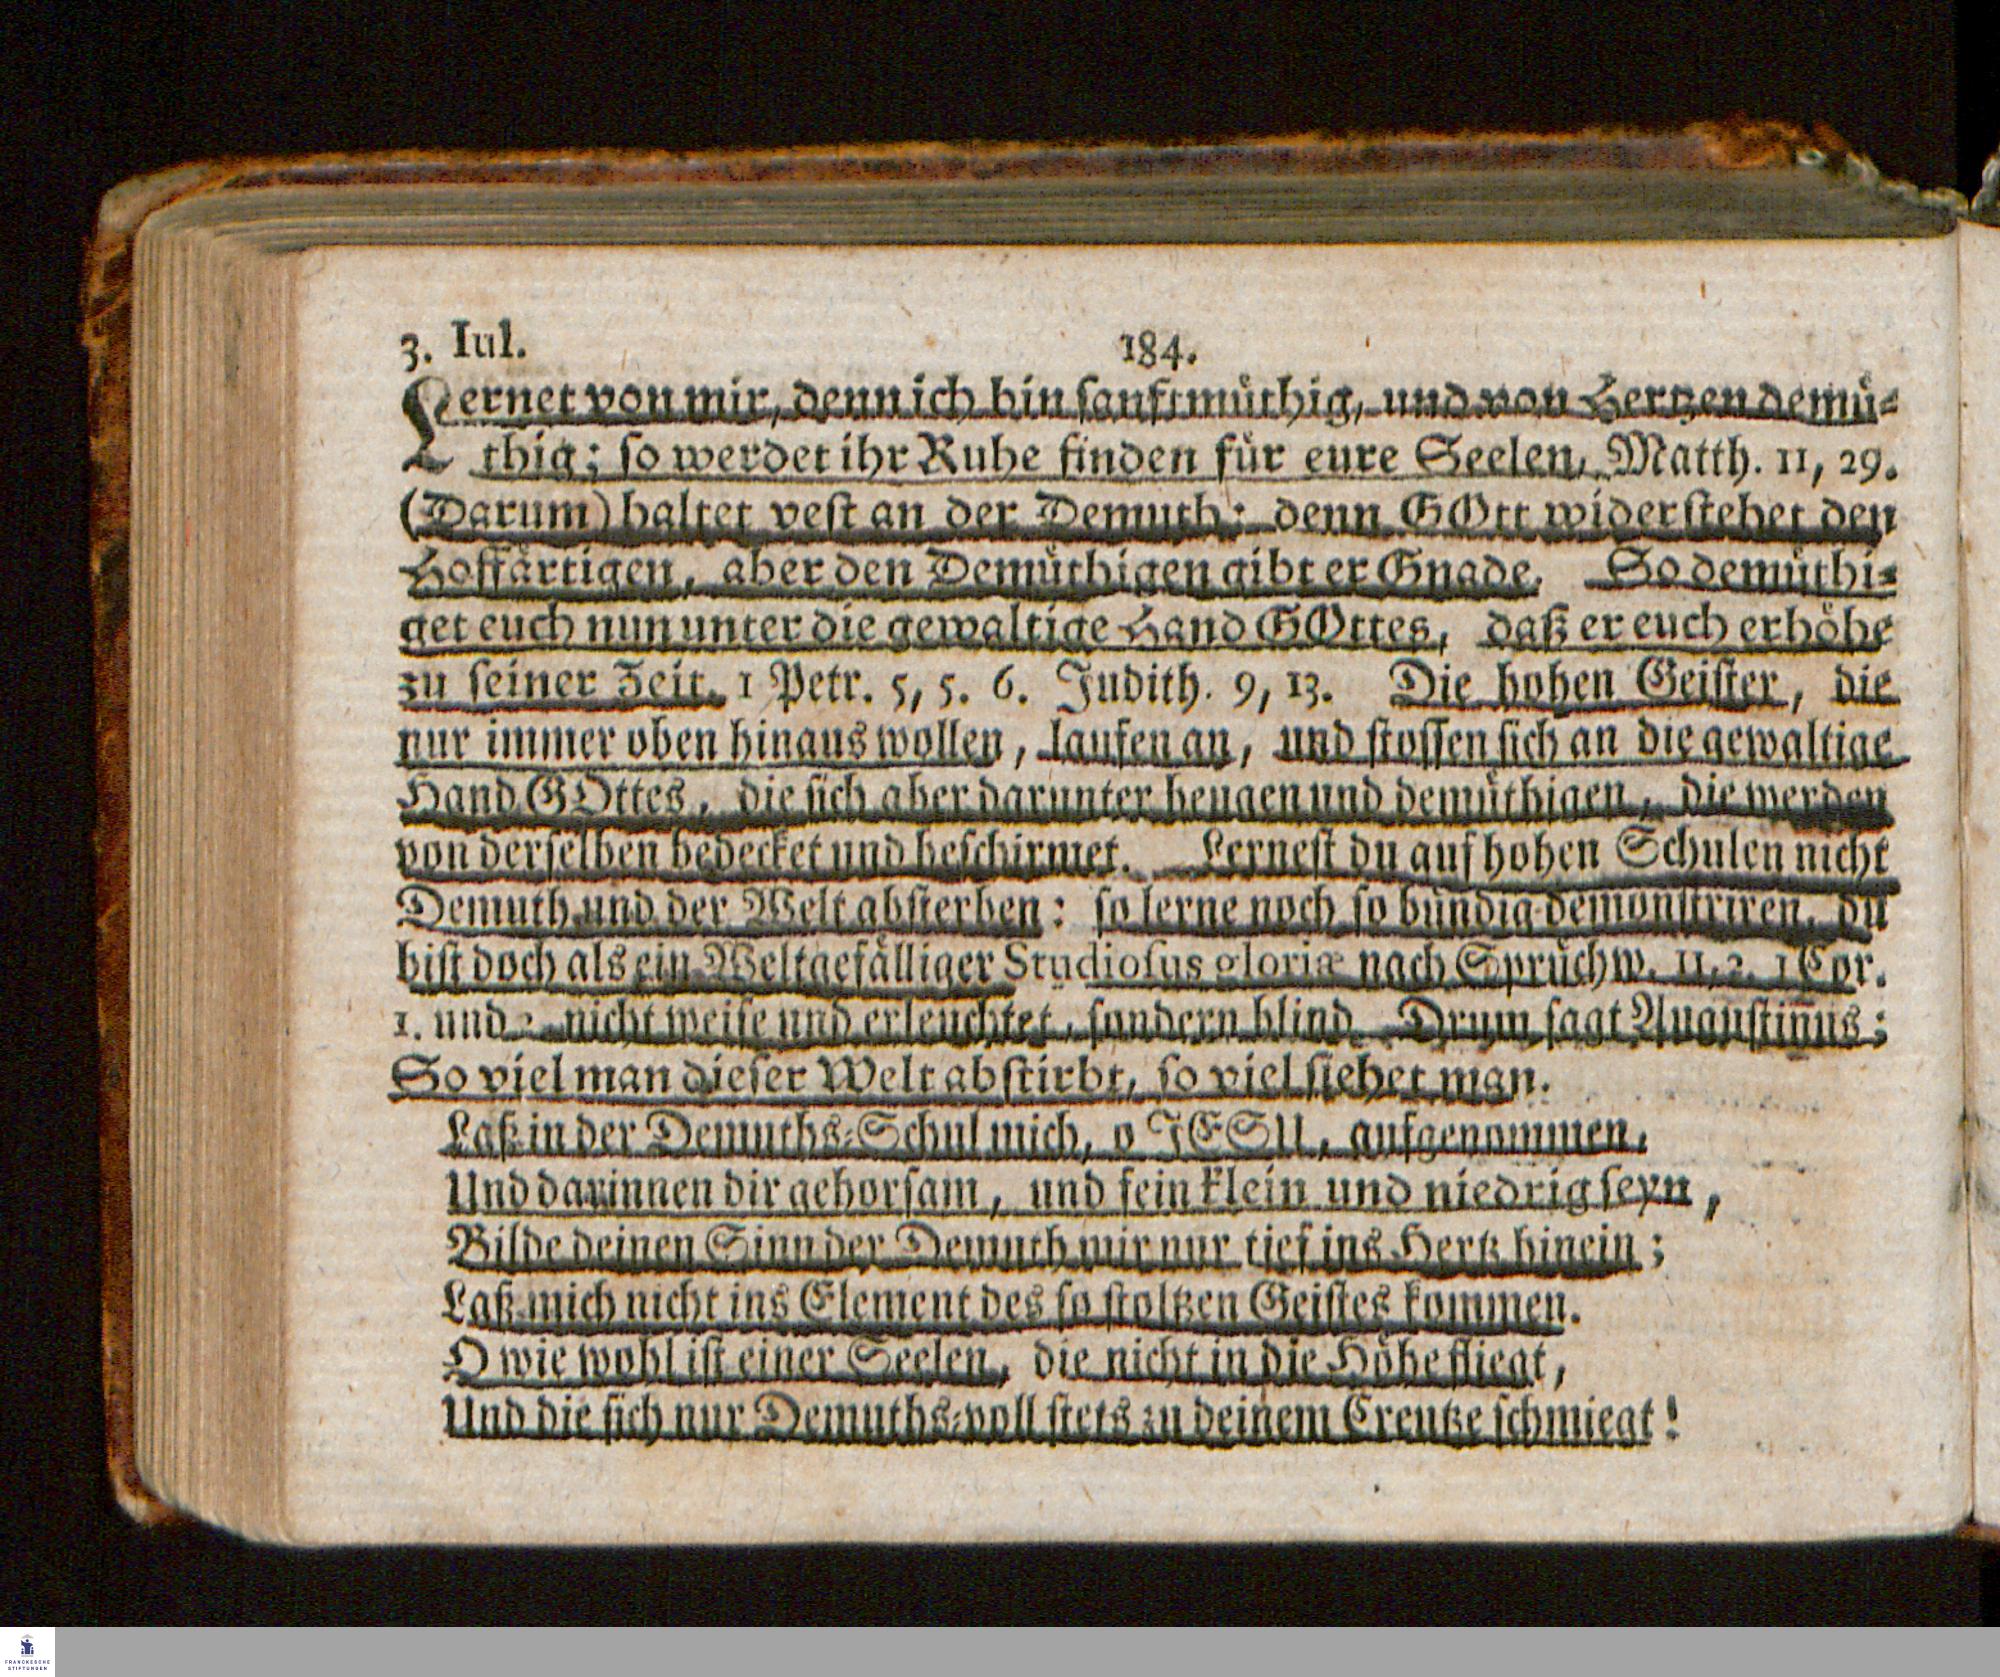 3. Iul. 184.
Lernet von mir, denn ich bin sanftmüthig, und von Hertzen demü-
thig; so werdet ihr Ruhe finden für eure Seelen, Matth. 11, 29.
(Darum) haltet vest an der Demuth: denn GOtt widerstehet den
Hoffärtigen, aber den Demüthigen gibt er Gnade. So demüthi-
get euch nun unter die gewaltige Hand GOttes, daß er euch erhöhe
zu seiner Zeit. 1 Petr. 5, 5. 6. Judith. 9, 13. Die hohen Geister, die
nur immer oben hinaus wollen, laufen an, und stossen sich an die gewaltige
Hand GOttes, die sich aber darunter beugen und demüthigen, die werden
von derselben bedecket und beschirmet. Lernest du auf hohen Schulen nicht
Demuth und der Welt absterben: so lerne noch so bündig demonstriren, du
bist doch als ein Weltgefälliger Studiosus gloriæ nach Sprüchw. 11, 2. 1 Cor.
1. und 2. nicht weise und erleuchtet, sondern blind. Drum sagt Augustinus:
So viel man dieser Welt abstirbt, so viel siehet man.
Laß in der Demuths-Schul mich, o JESU, aufgenommen,
Und darinnen dir gehorsam, und fein klein und niedrig seyn,
Bilde deinen Sinn der Demuth mir nur tief ins Hertz hinein;
Laß mich nicht ins Element des so stoltzen Geistes kommen.
O wie wohl ist einer Seelen, die nicht in die Höhe fliegt,
Und die sich nur Demuths-voll stets zu deinem Creutze schmiegt!
FRANCKESCHE
STIFTUNGEN